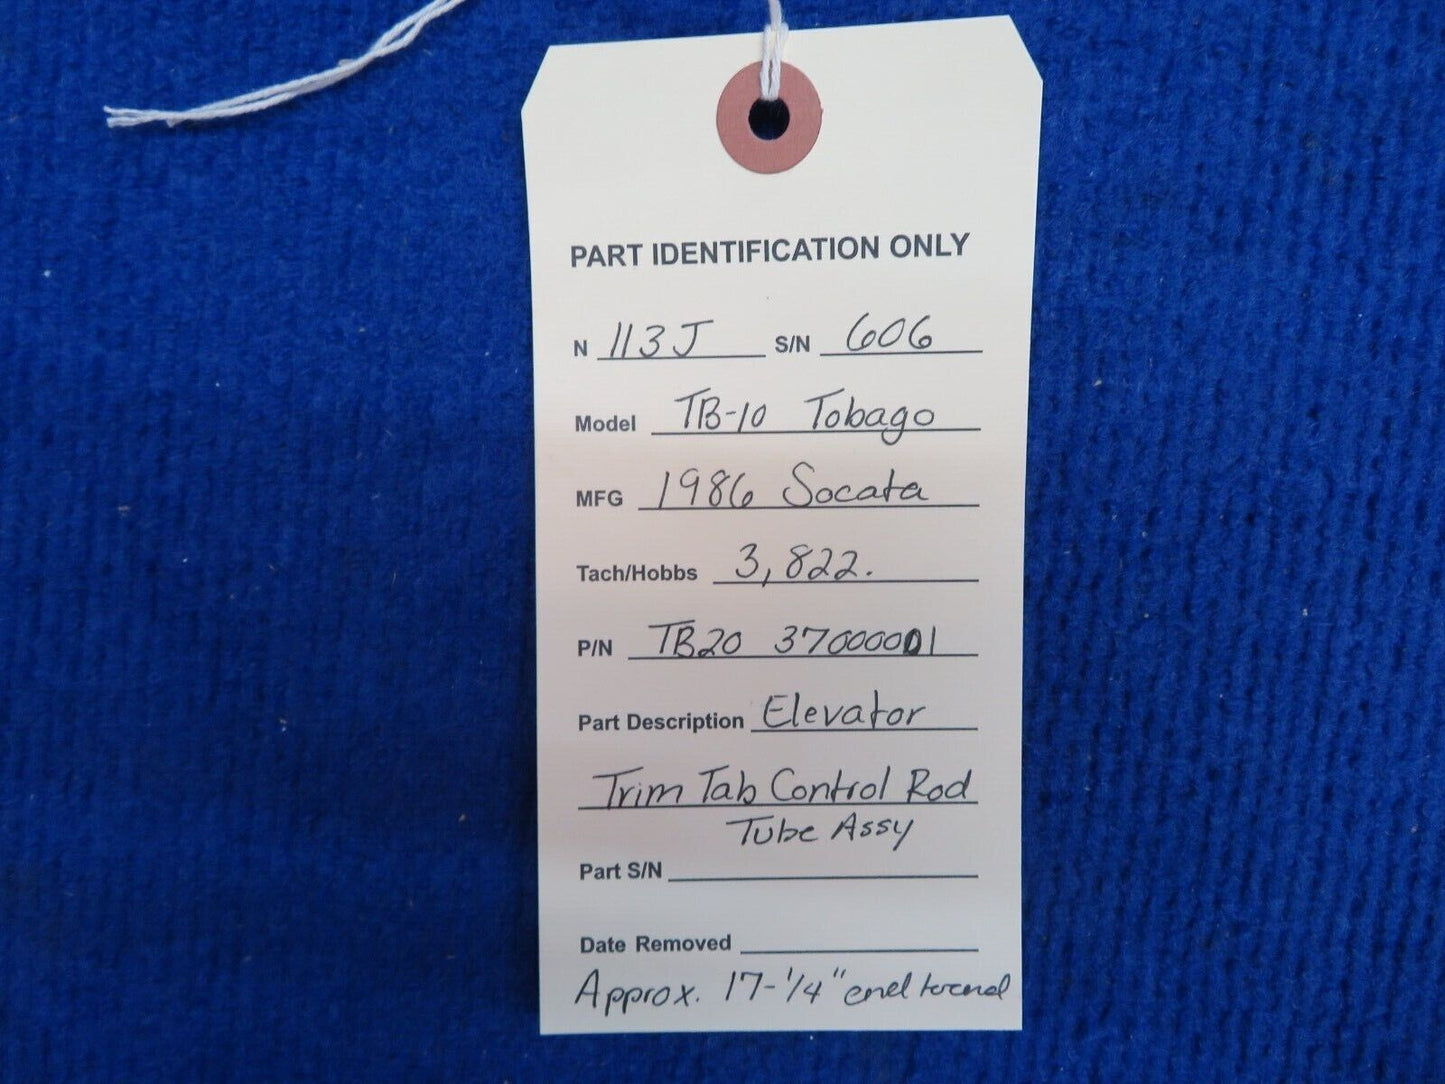 PART IDENTIFICATION ONLY
N 113J S/N 606
Model TB-10 Tobago
MFG 1986 Socata
Tach/Hobbs 3,822.
P/N TB20 37000001
Part Description Elevator
Trim Tab Control Rod
Tube Assy
Part S/N
Date Removed
Approx. 17-1/4" end to end